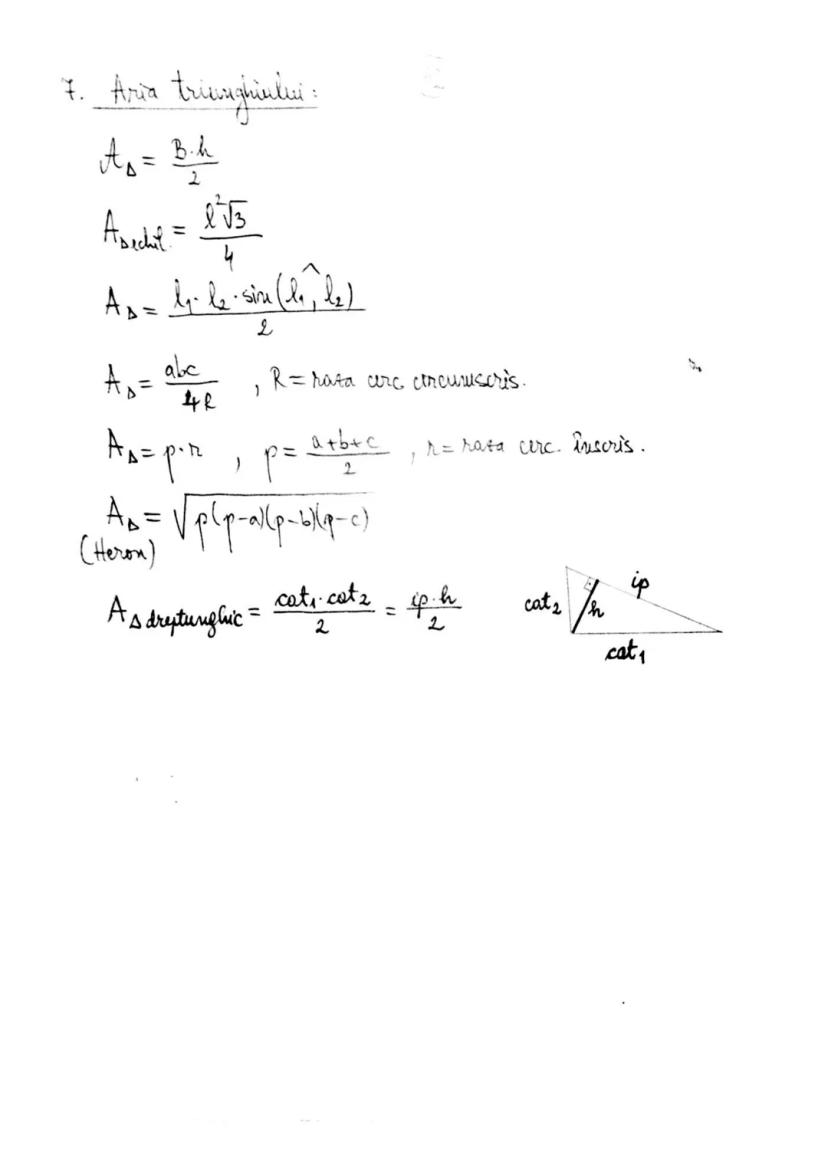 7. Aria triunghiului:
A_Δ = B·h / 2
A_Δechil. = l²√3 / 4
A_Δ = l₁·l₂·sin(l₁,^l₂) / 2
A_Δ = abc / 4R , R = raza cerc circumscris.
A_Δ = p·r , p = a+b+c / 2 , r = raza cerc. înscris.
A_Δ = √p(p-a)(p-b)(p-c)
(Heron)
A_Δ dreptunghic = cat₁·cat₂ / 2 = ip·h / 2
ip
cat₂
h
cat₁